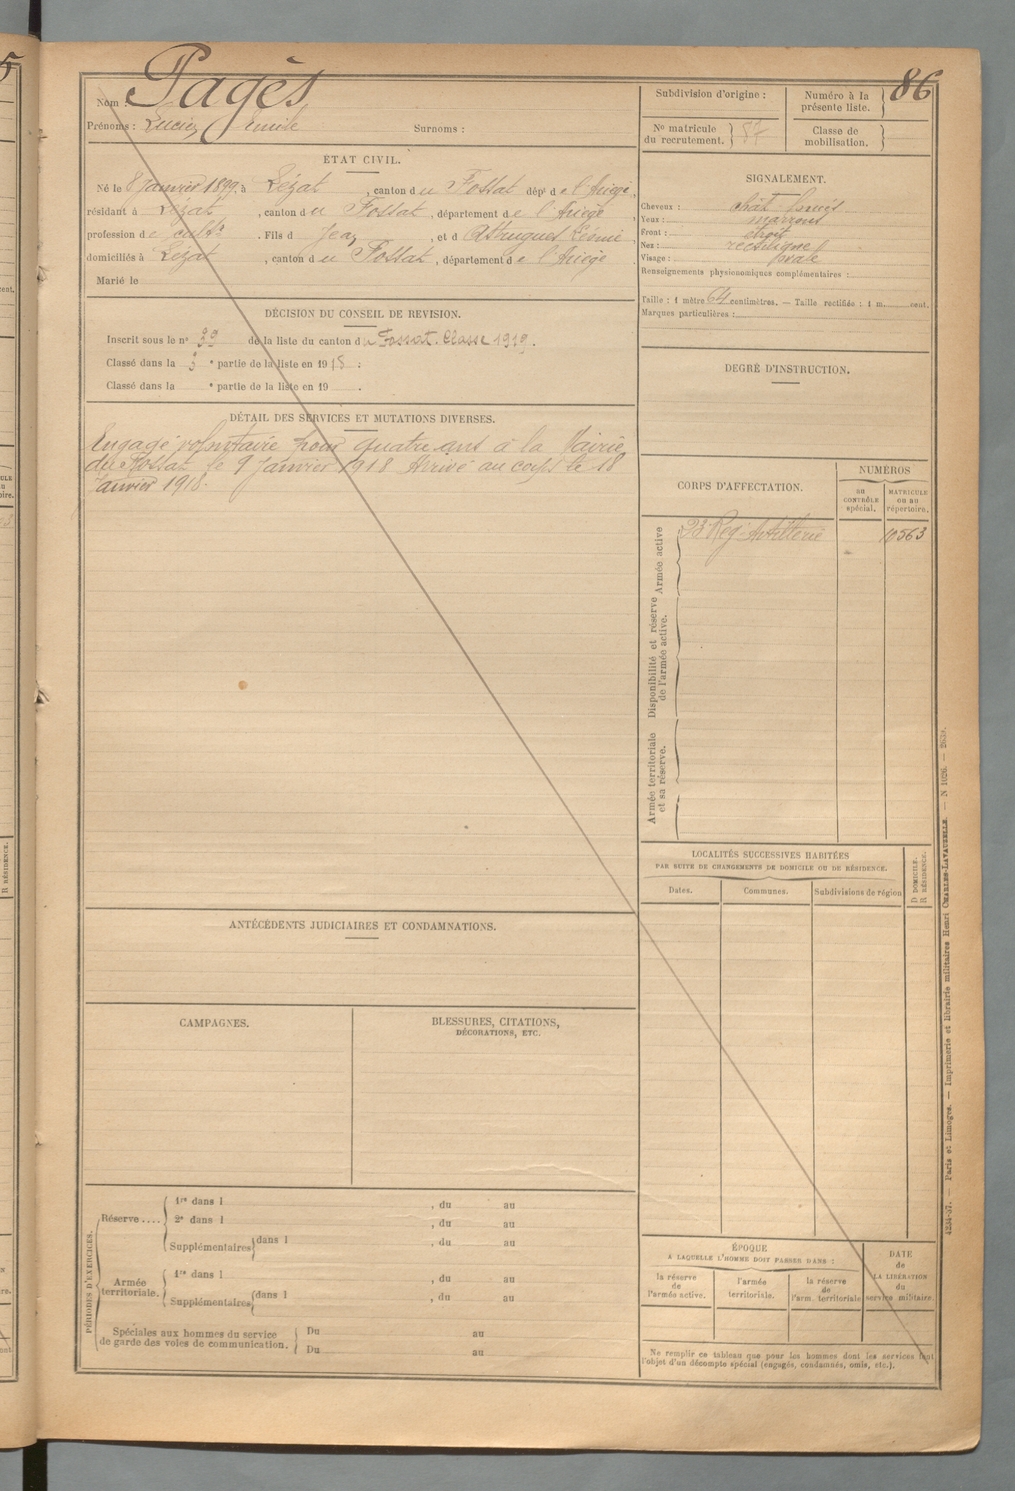 5
Nom : Pagès
Prénoms : Lucien Emile Surnoms :
ÉTAT CIVIL.
Né le 8 Janvier 1899, à Lézat, canton du Fossat, dépt de l'Ariège,
résidant à Lézat, canton du Fossat, département de l'Ariège,
profession de cultr. Fils de Jean, et d'Astruguet,
domiciliés à Lézat, canton du Fossat, département de l'Ariège.
Marié le
DÉCISION DU CONSEIL DE REVISION.
Inscrit sous le n° 39 de la liste du canton du Fossat. Classe 1919.
Classé dans la 5 e partie de la liste en 1918 ;
Classé dans la e partie de la liste en 19 .
DÉTAIL DES SERVICES ET MUTATIONS DIVERSES.
Engagé volontaire pour quatre ans à la Mairie
du Fossat le 9 Janvier 1918 Arrivé au corps le 18
Janvier 1918.
ANTÉCÉDENTS JUDICIAIRES ET CONDAMNATIONS.
CAMPAGNES.
BLESSURES, CITATIONS,
DÉCORATIONS, ETC.
PÉRIODES D'EXERCICES.
Réserve....
1re dans l , du au
2e dans l , du au
Supplémentaires dans l , du au
Armée
territoriale.
1re dans l , du au
Supplémentaires dans l , du au
Spéciales aux hommes du service
de garde des voies de communication.
Du au
Du au
Subdivision d'origine :
Numéro à la
présente liste.
86
N° matricule
du recrutement.
87
Classe de
mobilisation.
SIGNALEMENT.
Cheveux : chât foncés
Yeux : marrons
Front : droit
Nez : rectiligne
Visage : ovale
Renseignements physionomiques complémentaires :
Taille : 1 mètre 64 centimètres. — Taille rectifiée : 1 m. cent.
Marques particulières :
DEGRÉ D'INSTRUCTION.
CORPS D'AFFECTATION.
NUMÉROS
au
CONTRÔLE
spécial.
MATRICULE
ou au
répertoire.
Armée active
23 Reg Artillerie 10563
Disponibilité et réserve
de l'armée active.
Armée territoriale
et sa réserve.
LOCALITÉS SUCCESSIVES HABITÉES
PAR SUITE DE CHANGEMENTS DE DOMICILE OU DE RÉSIDENCE.
Dates.
Communes.
Subdivisions de région
D. DOMICILE.
R. RÉSIDENCE.
ÉPOQUE
A LAQUELLE L'HOMME DOIT PASSER DANS :
la réserve
de
l'armée active.
l'armée
territoriale.
la réserve
de
l'arm. territoriale
DATE
de
LA LIBÉRATION
du
service militaire.
Ne remplir ce tableau que pour les hommes dont les services font
l'objet d'un décompte spécial (engagés, condamnés, omis, etc.).
4234-37. — Paris et Limoges. — Imprimerie et librairie militaires Henri CHARLES-LAVAUZELLE. — N 1026. —